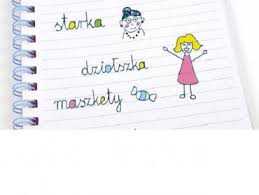 starka
dziołszka
maszkety